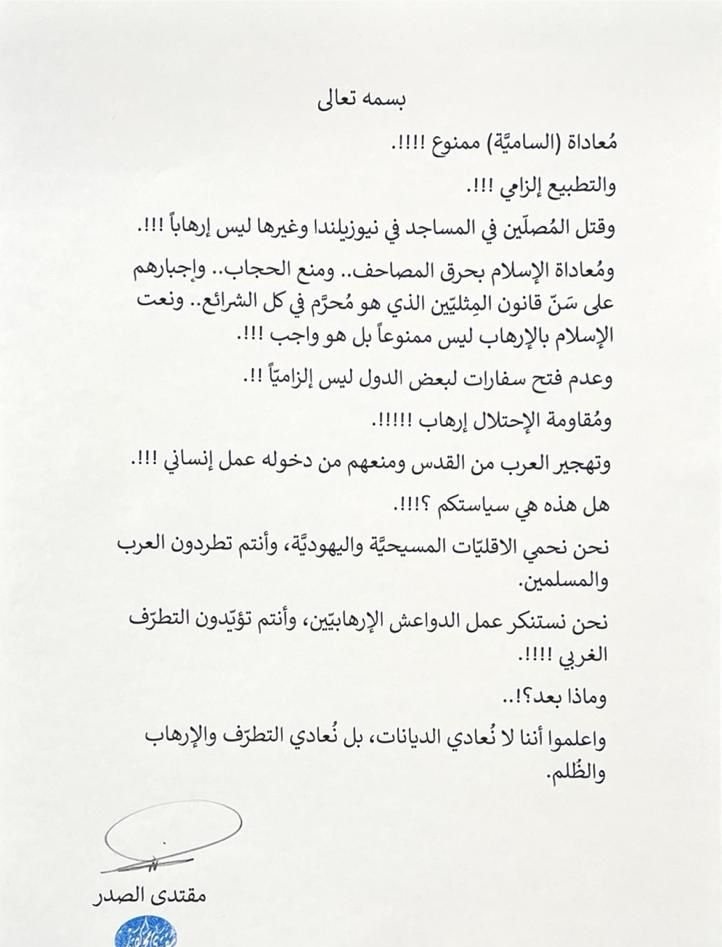 بسمه تعالى
مُعاداة (الساميَّة) ممنوع !!!!.
والتطبيع إلزامي !!!.
وقتل المُصلّين في المساجد في نيوزيلندا وغيرها ليس إرهاباً !!!.
ومُعاداة الإسلام بحرق المصاحف.. ومنع الحجاب.. وإجبارهم
على سَنّ قانون المِثليّين الذي هو مُحرَّم في كل الشرائع.. ونعت
الإسلام بالإرهاب ليس ممنوعاً بل هو واجب !!!.
وعدم فتح سفارات لبعض الدول ليس إلزاميّاً !!.
ومُقاومة الإحتلال إرهاب !!!!!.
وتهجير العرب من القدس ومنعهم من دخوله عمل إنساني !!!.
هل هذه هي سياستكم ؟!!!.
نحن نحمي الاقليّات المسيحيَّة واليهوديَّة، وأنتم تطردون العرب
والمسلمين.
نحن نستنكر عمل الدواعش الإرهابيّين، وأنتم تؤيّدون التطرّف
الغربي !!!!.
وماذا بعد؟!..
واعلموا أننا لا نُعادي الديانات، بل نُعادي التطرّف والإرهاب
والظُلم.
مقتدى الصدر